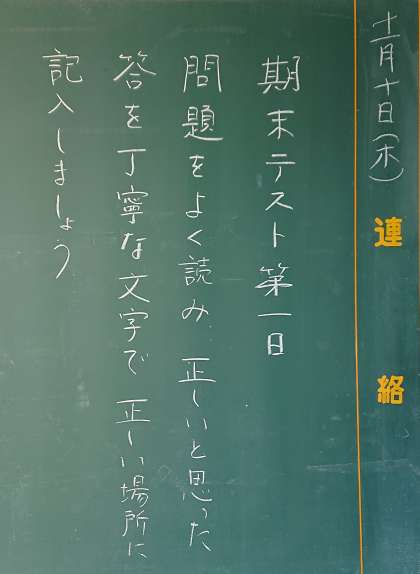 十二月十日(木)
連絡
期末テスト第一日
問題をよく読み 正しいと思った
答を丁寧な文字で 正しい場所に
記入しましょう